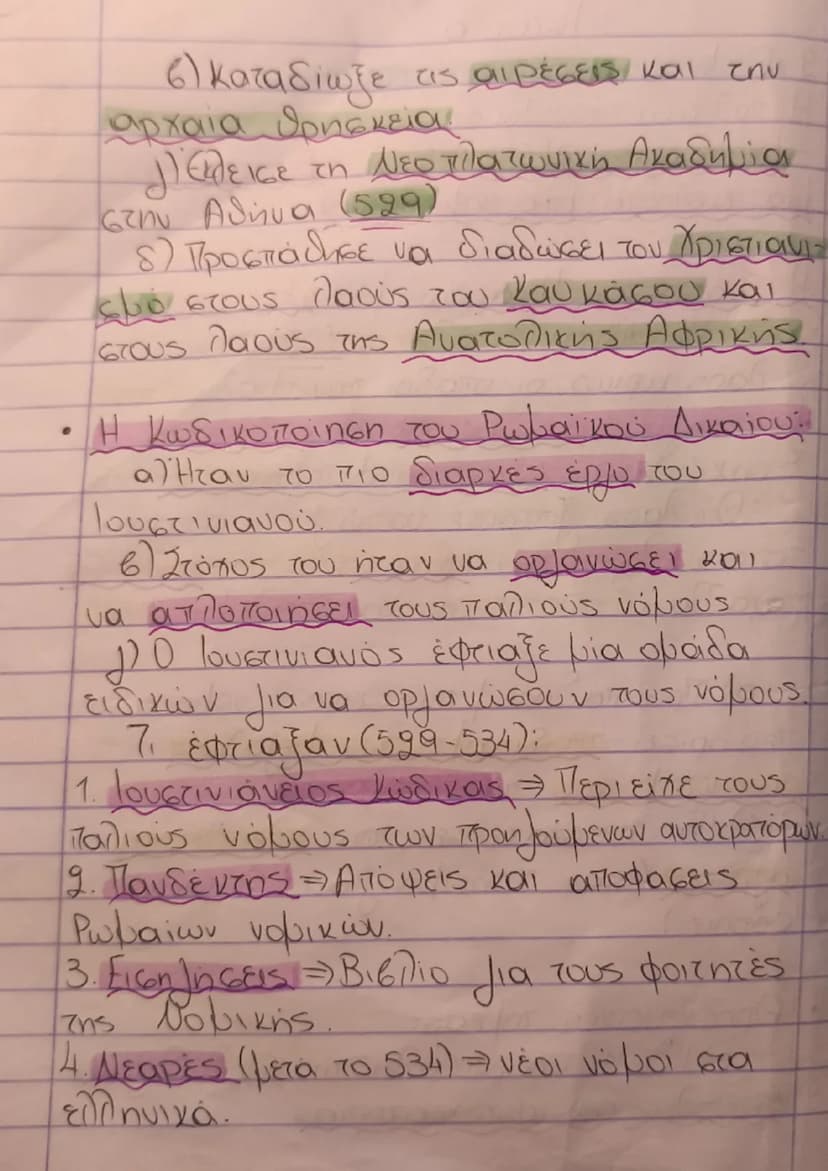 β) Καταδίωξε τις αιρέσεις και την
αρχαία θρησκεία.
γ) Έκλεισε τη Νεοπλατωνική Ακαδημία
στην Αθήνα (529)
δ) Προσπάθησε να διαδώσει τον Χριστιανι-
σμό στους λαούς του Καυκάσου και
στους λαούς της Ανατολικής Αφρικής.
• Η Κωδικοποίηση του Ρωμαϊκού Δικαίου:
α) Ήταν το πιο διαρκές έργο του
Ιουστινιανού.
β) Στόχος του ήταν να οργανώσει και
να απλοποιήσει τους παλιούς νόμους
γ) Ο Ιουστινιανός έφτιαξε μία ομάδα
ειδικών για να οργανώσουν τους νόμους.
7. έφτιαξαν (529-534):
1. Ιουστινιάνειος Κώδικας ⇒ Περιείχε τους
παλιούς νόμους των προηγούμενων αυτοκρατόρων.
2. Πανδέκτης ⇒ Απόψεις και αποφάσεις
Ρωμαίων νομικών.
3. Εισηγήσεις ⇒ Βιβλίο για τους φοιτητές
της Νομικής.
4. Νεαρές (μετά το 534) ⇒ νέοι νόμοι στα
ελληνικά.